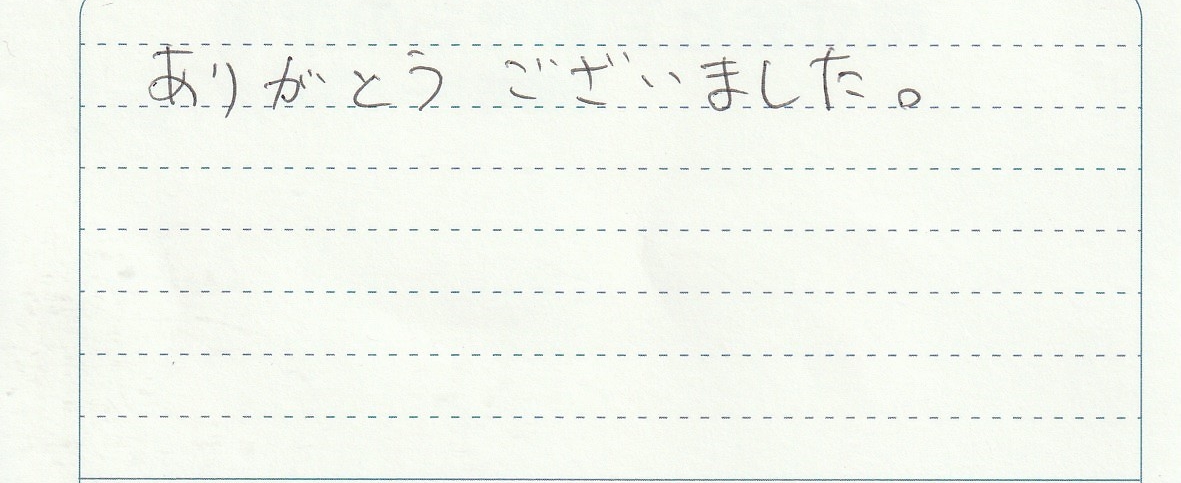 ありがとう ございました。